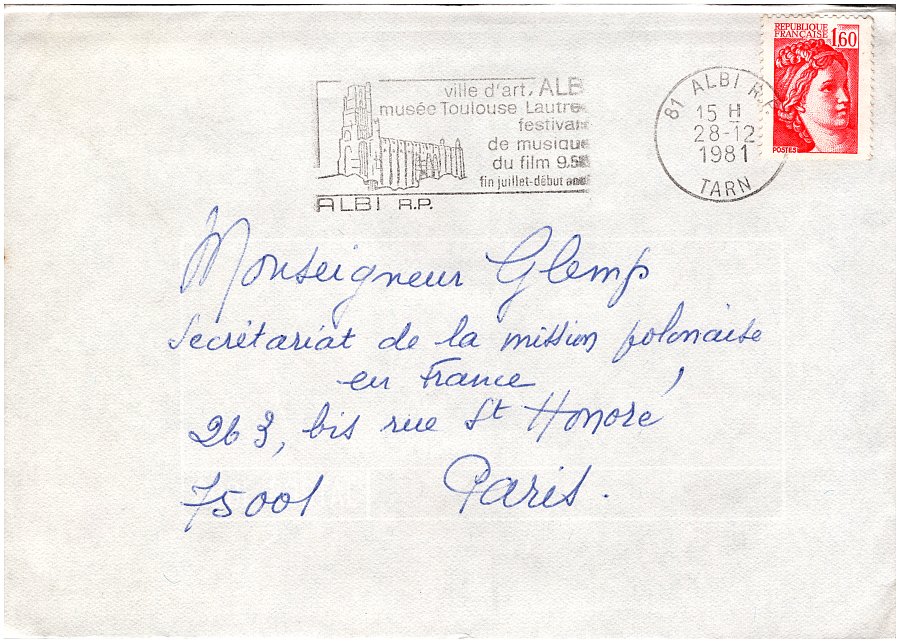 REPUBLIQUE
FRANÇAISE 1,60
POSTES
ville d'art. ALB
musée Toulouse Lautre
festival
de musique
du film 9.5
fin juillet-début
ALBI R.P.
81 ALBI R.P.
15 H
28-12
1981
TARN
Monseigneur Glemp
Secrétariat de la mission polonaise
en France
263, bis rue St Honoré
75001 Paris.